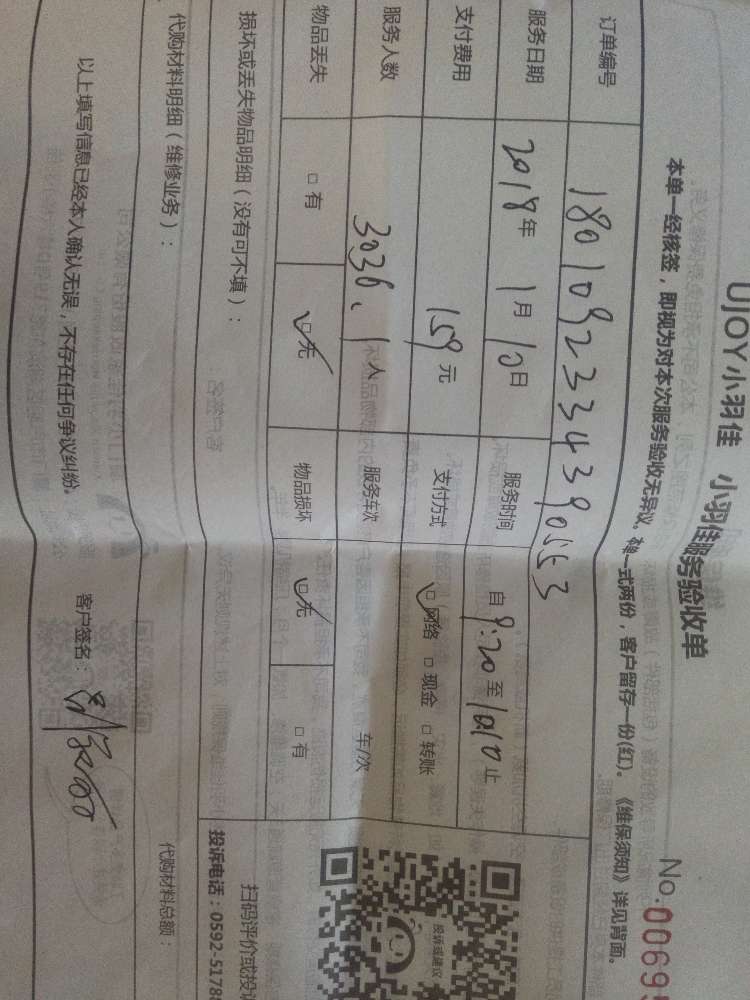 UJOY小羽佳 小羽佳服务验收单
No.0069
本单一经核签，即视为对本次服务验收无异议。本单一式两份，客户留存一份(红)。《维保须知》详见背面。
订单编号 1801092334390553
服务日期 2018年 1月 10日 服务时间 自 9:20 至 10:10 止
支付费用 159元 支付方式 ☑网络 □现金 □转账
服务人数 3036、1人 服务车次 车/次
物品丢失 □有 ☑无 物品损坏 ☑无 □有
损坏或丢失物品明细（没有可不填）：
扫码评价或投诉
投诉或建议
投诉电话：0592-5178
代购材料明细（维修业务）： 代购材料总额：
以上填写信息已经本人确认无误，不存在任何争议纠纷。 客户签名：